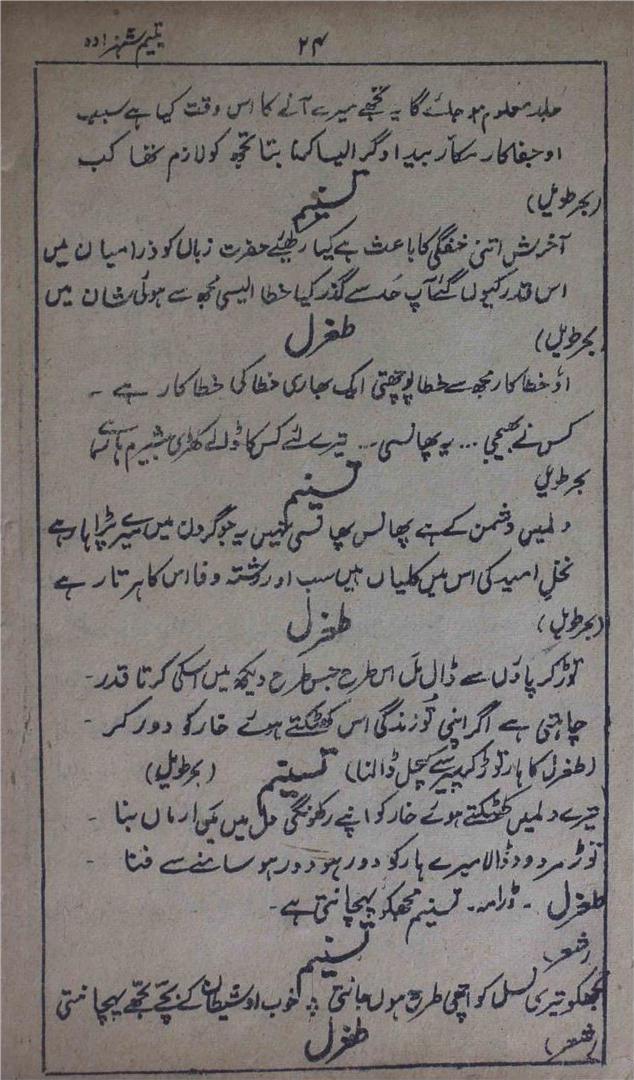 ۲۴ یتیم شہزادہ
جلد معلوم ہو جائے گا یہ تجھے میرے آنے کا اس وقت کیا ہے سبب
او جفا کار سکّار بیداد گر ایسا کہنا بتا تجھ کو لازم تھا کب
تسنیم (بحر طویل)
آخرش اتنی خفگی کا باعث ہے کیا رکھیئے حضرت زباں کو ذرا میان میں
اس قدر کیوں گئے آپ حد سے گذر کیا خطا ایسی مجھ سے ہوئی شان میں
طغرل (بحر طویل)
او خطا کار مجھ سے خطا پوچھتی ایک بھاری خطا کی خطا کار ہے ۔
کس نے بھیجی ... یہ پھانسی ... تیرے لئے کس کا ڈالے کھڑی بیشرم ہار ہے
تسنیم بحر طویل
دلمیں دشمن کے ہے پھانس پھانسی نہیں یہ جو گردن میں میرے پڑا ہار ہے
نخل امید کی اس میں کلیاں ہیں سب اور رشتہ وفا اس کا ہر تار ہے
طغرل (بحر طویل)
توڑ کر پاؤں سے ڈال مل اس طرح جس طرح دیکھ میں اسکی کرتا قدر ۔
چاہتی ہے اگر اپنی تو زندگی اس کھٹکتے ہوئے خار کو دور کر ۔
(طغرل کا ہار توڑ کر پیر سے کچل ڈالنا) تسنیم (بحر طویل)
تیرے دلمیں کھٹکتے ہوئے خار کو اپنے رکھونگی دل میں میں ارماں بنا ۔
توڑ مردود ڈالا میرے ہار کو دور ہو دور ہو سامنے سے فنا ۔
طغرل ۔ ڈرامہ ۔ تسنیم مجھکو پہچانتی ہے ۔
تسنیم (شعر)
تجھکو تیری نسل کو اچھی طرح ہوں جانتی ؞ خوب او شیطان کے بچے تجھے پہچانتی
طغرل (شعر)